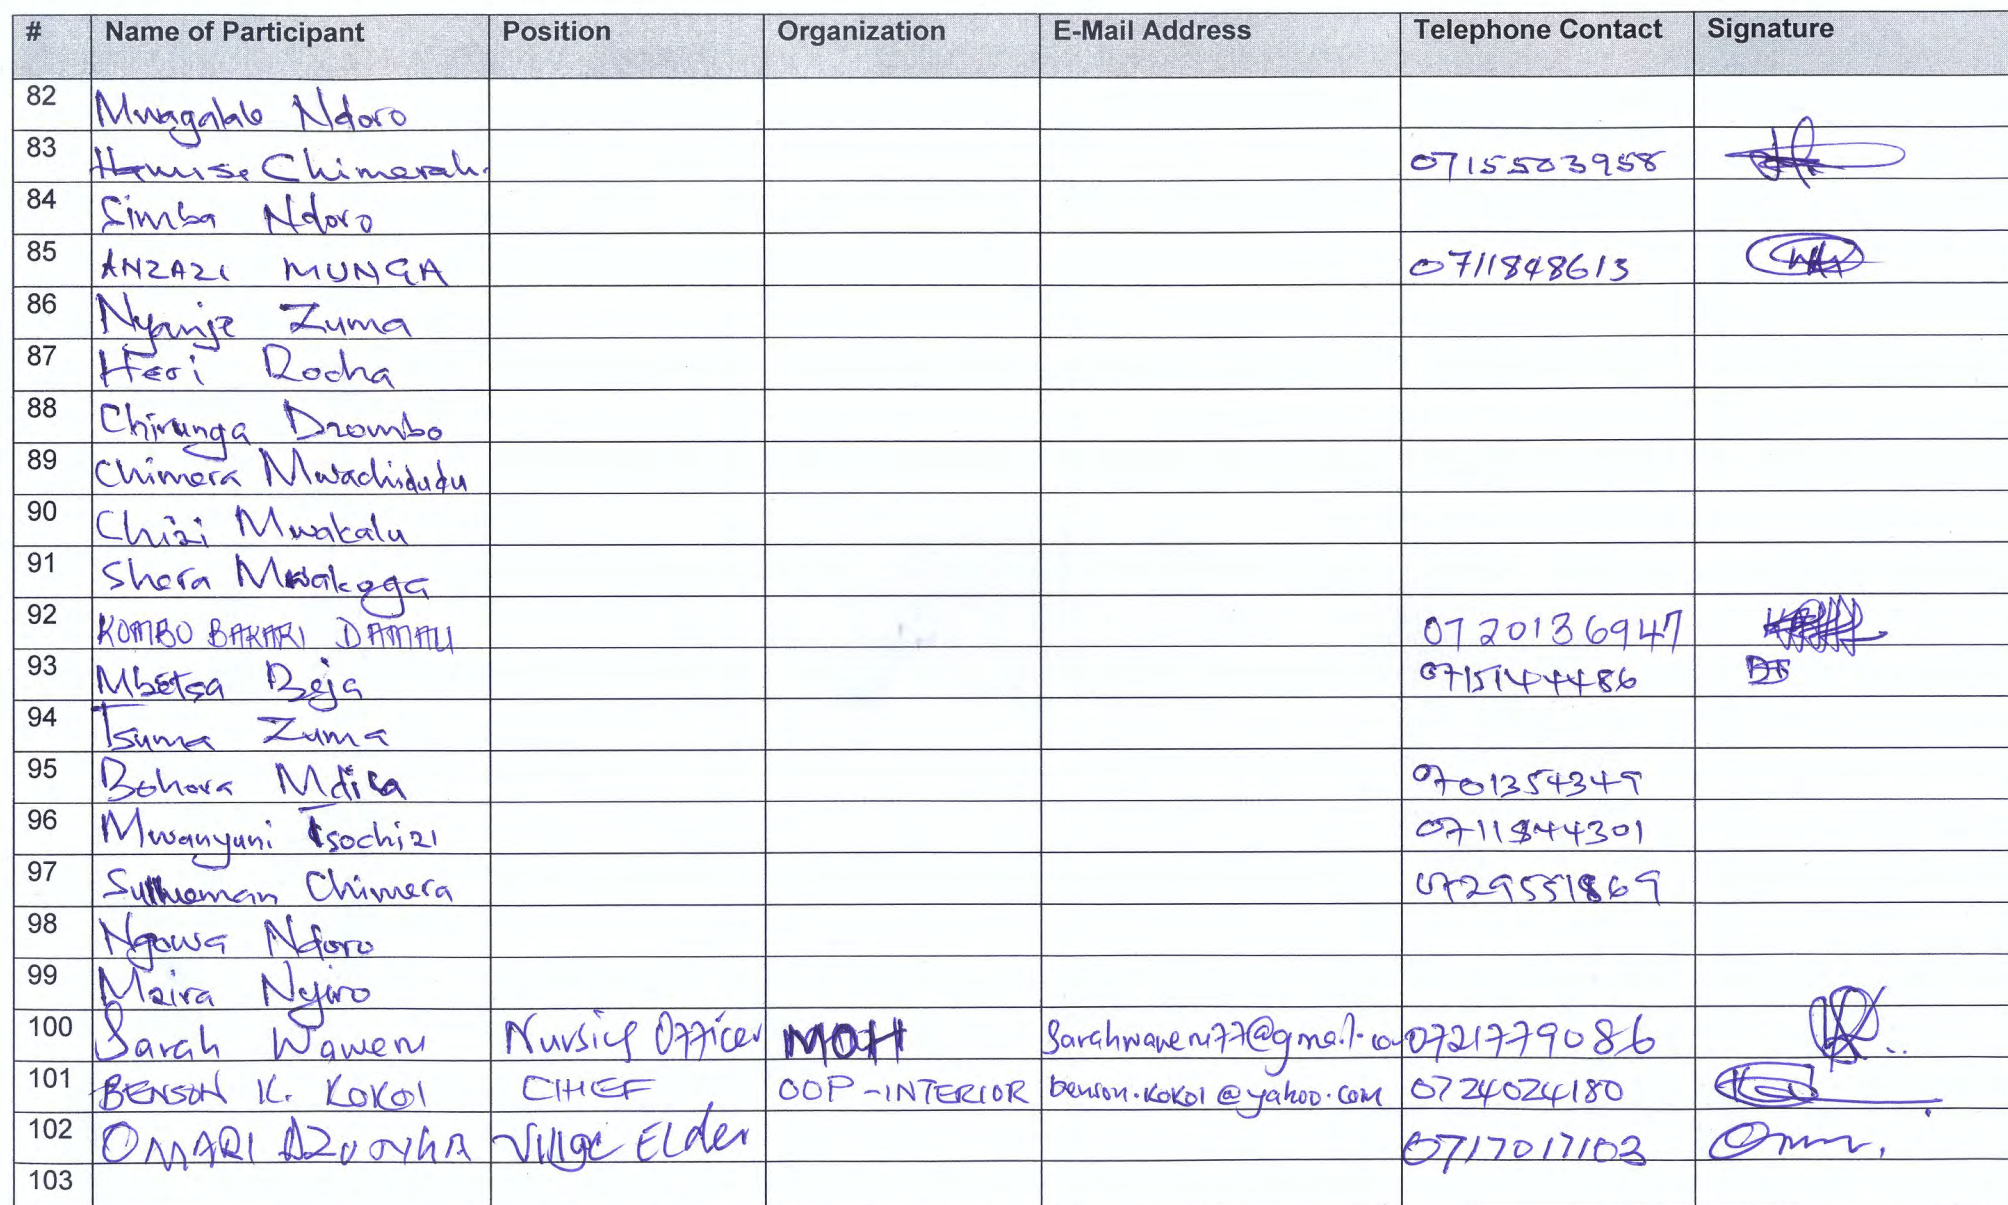 # Name of Participant Position Organization E-Mail Address Telephone Contact Signature
82 Mwagalalo Ndoro
83 Hamisi Chimerah 0715503958
84 Simba Ndoro
85 ANZAZI MUNGA 0711848613
86 Nyanje Zuma
87 Heri Rocha
88 Chirunga Dzombo
89 Chimera Mwachidudu
90 Chizi Mwakalu
91 Shera Mwakoga
92 KOMBO BAKARI 0720136947
93 Mbetsa Beja 0715144486
94 Tsuma Zuma
95 Bohora Mdila 0701354349
96 Mwanyuni Tsochizi 0711844301
97 Suleman Chimera 0729551869
98 Ngowa Ndoro
99 Mzira Nyiro
100 Sarah Waweru Nursing Officer MOH 0721779086
101 BENSON K. KOKOI CHIEF OOP-INTERIOR benson.kokoi@yahoo.com 0724024180
102 OMARI Village Elder 0717017103
103